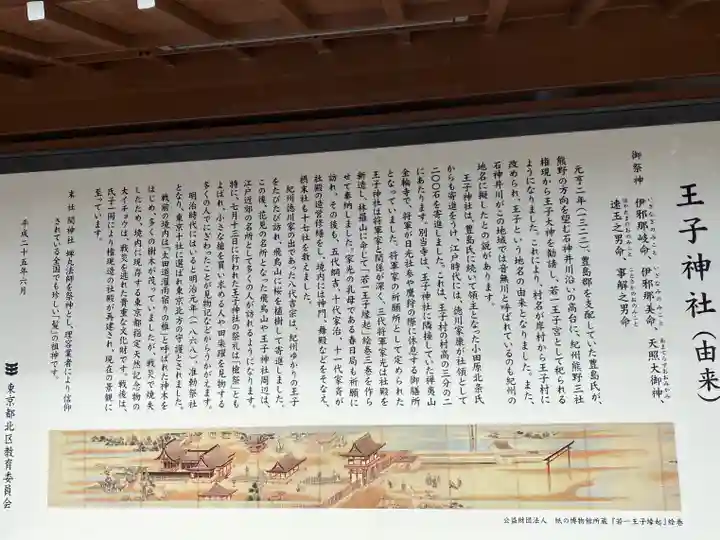 王子神社（由来）
御祭神　伊邪那岐命、伊邪那美命、天照大御神
いざなぎのみこと　いざなみのみこと　あまてらすおおみかみ
速玉之男命、事解之男命
はやたまのおのみこと　ことさかのおのみこと
元亨二年（一三二二）、豊島郡を支配していた豊島氏が、
熊野の方向を望む石神井川沿いの高台に、紀州熊野三社
権現から王子大神を勧請し、若一王子宮として祀られる
ようになりました。これにより、村名が岸村から王子村に
改められ、王子という地名の由来となりました。また、
石神井川がこの地域では音無川と呼ばれているのも紀州の
地名に擬したとの説があります。
王子神社は、豊島氏に続いて領主となった小田原北条氏
からも寄進をうけ、江戸時代には、徳川家康が社領として
二〇〇石を寄進しました。これは、王子村の村高の三分の二
にあたります。別当寺は、王子神社に隣接していた禅夷山
金輪寺で、将軍が日光社参や鷹狩の際に休息する御膳所
となっていました。将軍家の祈願所として定められた
王子神社は将軍家と関係が深く、三代将軍家光は社殿を
新造し、林羅山に命じて「若一王子縁起」絵巻三巻を作ら
せて奉納しました。家光の乳母である春日局も祈願に
訪れ、その後も、五代綱吉、十代家治、十一代家斉が
社殿の造営修繕をし、境内には神門、舞殿などをそなえ、
摂末社も十七社を数えました。
紀州徳川家の出であった八代吉宗は、紀州ゆかりの王子
をたびたび訪れ、飛鳥山に桜を植樹して寄進しました。
この後、花見の名所となった飛鳥山や王子神社周辺は、
江戸近郊の名所として多くの人が訪れるようになります。
特に、七月十三日に行われた王子神社の祭礼は「槍祭」とも
よばれ、小さな槍を買い求める人や田楽躍を見物する
多くの人でにぎわったことが見物記などからうかがえます。
明治時代にはいると明治元年（一八六八）、准勅祭社
となり、東京十社に選ばれ東京北方の守護とされました。
戦前の境内は、「太田道灌雨宿りの椎」と呼ばれた神木を
はじめ、多くの樹木が茂っていましたが、戦災で焼失
したため、境内に現存する東京都指定天然記念物の
大イチョウは、戦災を逃れた貴重な文化財です。戦後は、
氏子一同により権現造の社殿が再建され、現在の景観に
至っています。
末社　関神社　蝉丸法師を祭神とし、理容業者により信仰
されている全国でも珍しい「髪」の祖神です。
平成二十五年六月
東京都北区教育委員会
公益財団法人　紙の博物館所蔵『若一王子縁起』絵巻